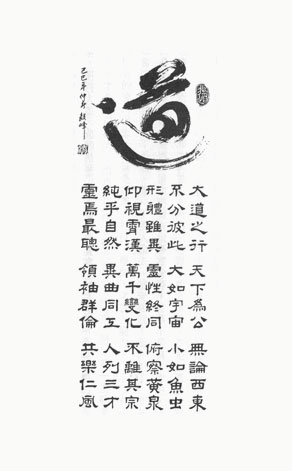 道
大道之行天下為公無論西東
不分彼此大如宇宙小如魚虫
形體雖異靈性終同俯察黃泉
仰視霄漢萬千變化不離其宗
純乎自然異曲同工人列三才
靈焉最聰領袖群倫共樂仁風
己巳年仲